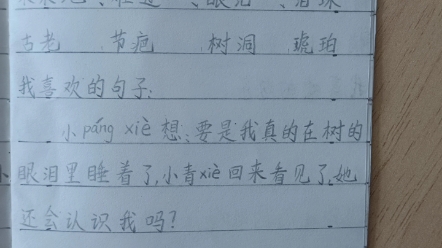 古老 节疤 树洞 琥珀
我喜欢的句子:
小páng xiè想:要是我真的在树的
眼泪里睡着了,小青xiè回来看见了,她
还会认识我吗?